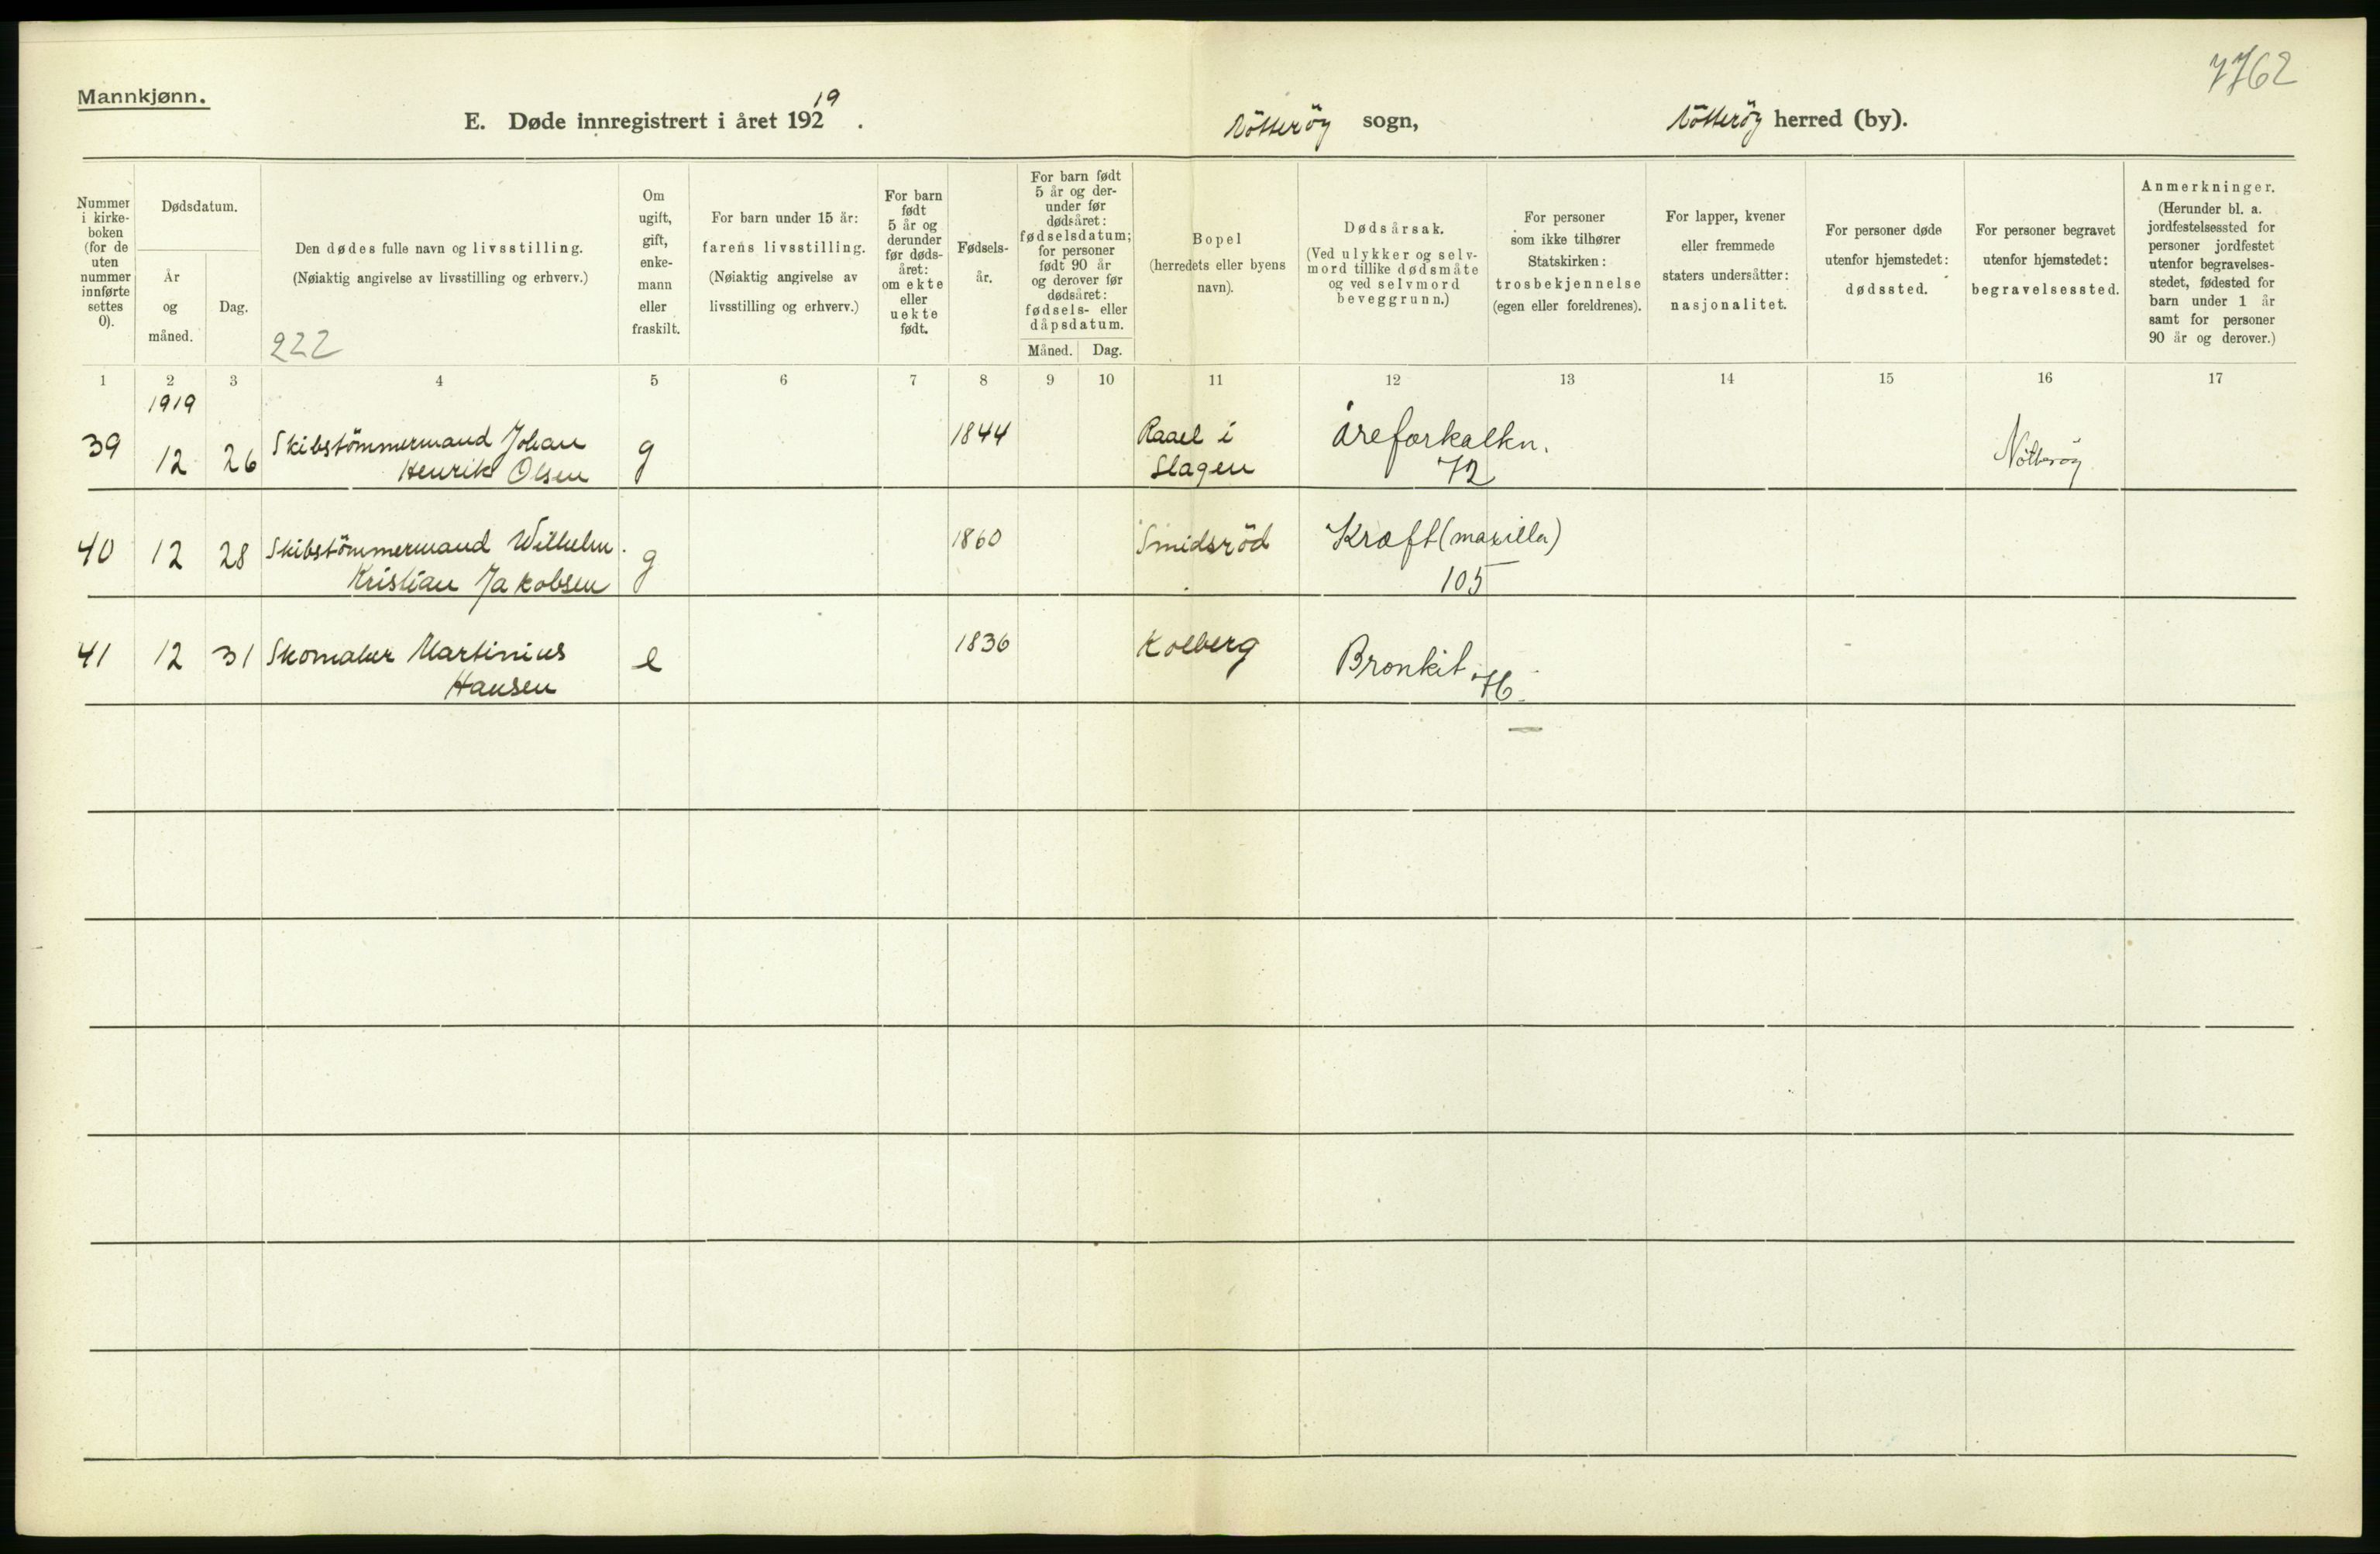 7762
Mannkjønn.
E. Døde innregistrert i året 192 19 .
Nötteröy sogn,
Nötteröy herred (by).
Nummer
i kirke-
boken
(for de
uten
nummer
innførte
settes
0).
Dødsdatum.
År
og
måned.
Dag.
Den dødes fulle navn og livsstilling.
(Nøiaktig angivelse av livsstilling og erhverv.)
222
Om
ugift,
gift,
enke-
mann
eller
fraskilt.
For barn under 15 år:
farens livsstilling.
(Nøiaktig angivelse av
livsstilling og erhverv.)
For barn
født
5 år og
derunder
før døds-
året:
om ekte
eller
uekte
født.
Fødsels-
år.
For barn født
5 år og der-
under før
dødsåret:
fødselsdatum;
for personer
født 90 år
og derover før
dødsåret:
fødsels- eller
dåpsdatum.
Måned. Dag.
Bopel
(herredets eller byens
navn).
Dødsårsak.
(Ved ulykker og selv-
mord tillike dødsmåte
og ved selvmord
beveggrunn.)
For personer
som ikke tilhører
Statskirken:
trosbekjennelse
(egen eller foreldrenes).
For lapper, kvener
eller fremmede
staters undersåtter:
nasjonalitet.
For personer døde
utenfor hjemstedet:
dødssted.
For personer begravet
utenfor hjemstedet:
begravelsessted.
Anmerkninger.
(Herunder bl. a.
jordfestelsessted for
personer jordfestet
utenfor begravelses-
stedet, fødested for
barn under 1 år
samt for personer
90 år og derover.)
1 2 3 4 5 6 7 8 9 10 11 12 13 14 15 16 17
1919
39 12 26 Skibstömmermand Johan g 1844 Raael i Åreforkalkn. Nötteröy
Henrik Olsen Slagen 72
40 12 28 Skibstömmermand Wilhelm g 1860 Smidsröd Kræft (maxilla)
Kristian Jakobsen 105
41 12 31 Skomaker Martinius e 1836 Kolberg Bronkit 76
Hansen